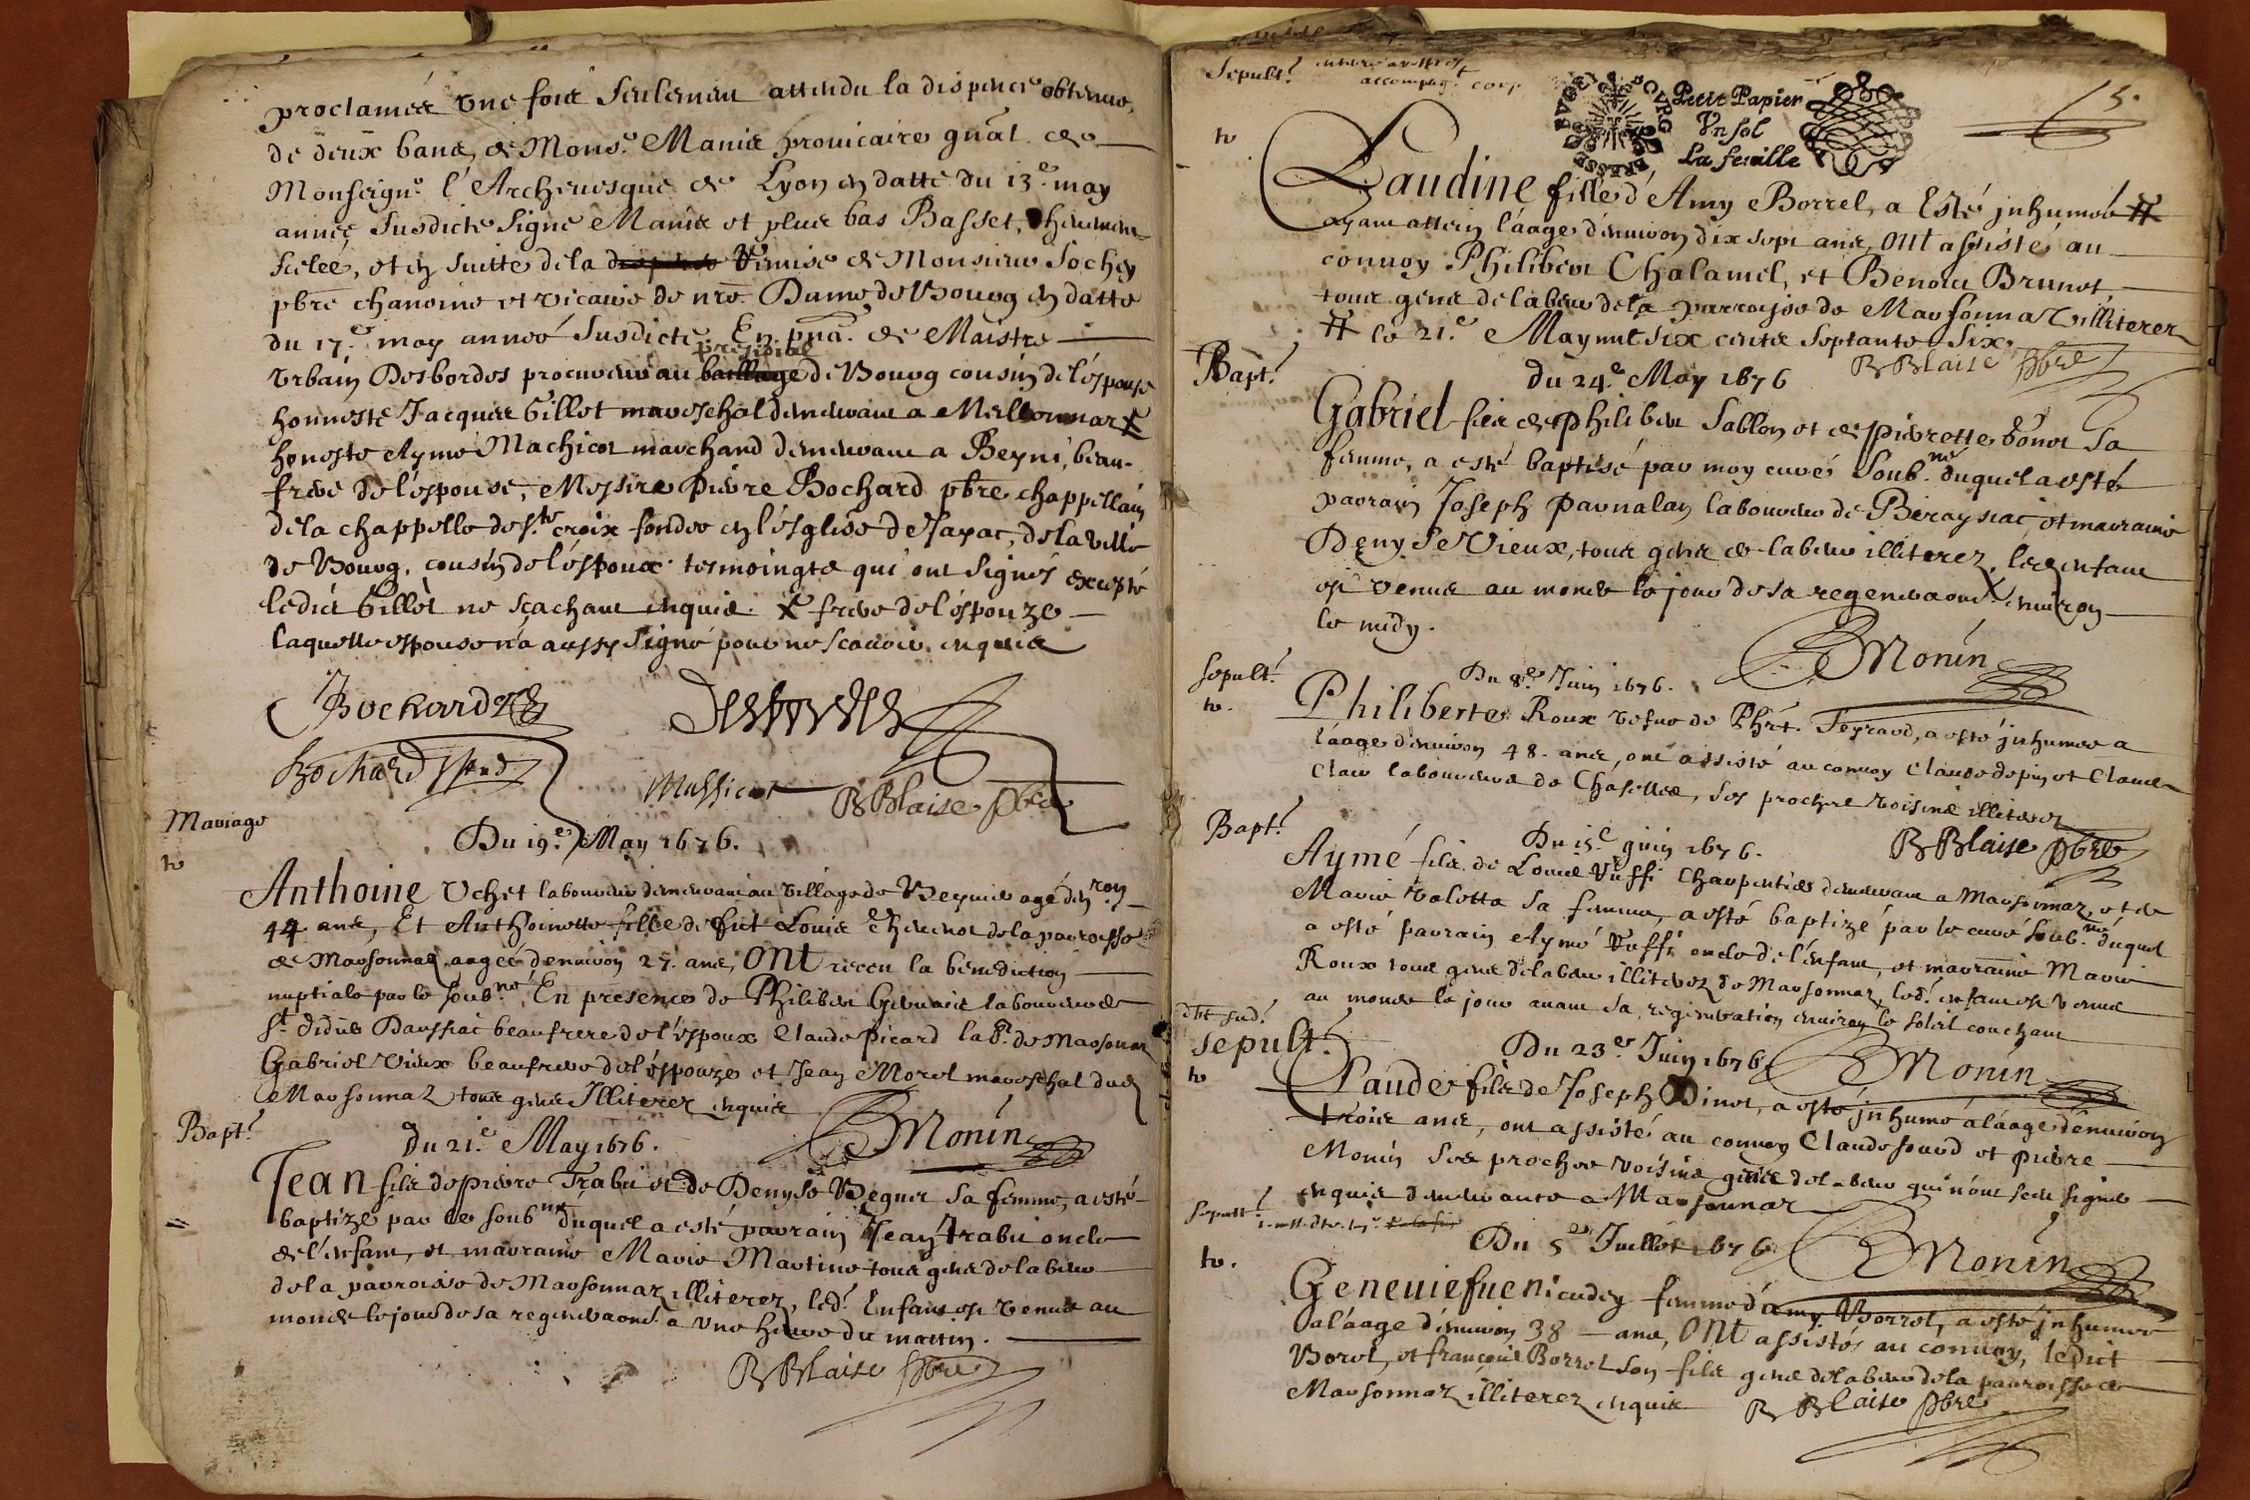 proclamée une fois seulemen attendu la dispence obtenue
de deux bancs, de Monsr. Manis provicaire gnal. de
Monseignr. l'Archevesque de Lyon en datte du 13e. may
année susdicte signé Manis et plus bas Basset,
scelée, et en suitte de la remise de Monsieur Sochey
pbre chanoine et vicaire de nre. Dame de Bourg en datte
du 17e. may année susdicte. En pnce. de Maistre
presidial
Urbain Desbordes procureur au baillage de Bourg cousin de l'espouse
honneste Jacques Gillot mareschal demeurant a Marsonnas
honeste Aymé Machicot marchand demeurant a Beyni, beau-
frere de l'espouse, Messire Pierre Bochard pbre chappellain
de la chappelle de Ste croix fondée en l'esglise de Jayac, de la ville
de Bourg, cousin de l'espoux tesmoingts qui ont signés excepté
ledict Gillot ne sçachant enquis. X frere de l'espouze
laquelle espouse n'a aussy signé pour ne scavoir, enquise
Bochard
Desbordes
Bochard
Massicot
B Blaise pbre
Mariage
Du 19e. May 1676.
to
Anthoine Uchet laboureur demeurant au village de Beynier agé d'environ
44 ans, Et Anthoinette fille de fut Louis Chevenot de la parroisse
de Marsonnas aagée d'environ 25. ans, ONt receu la benediction
nuptiale par le soubné. En presence de Philibert Gervais laboureur de
St. Didier Daussiac beaufrere de l'espoux Claude Picard labr. de Marsonnas
Gabriel Vieux beaufrere de l'espouze et Jean Morel mareschal dud.
Marsonnaz tous gens Illiterez enquis
Monin
Bapt.
du 21e. May 1676.
Jean fils de pierre Trabu et de Denyse Begner sa femme, a esté
baptizé par le soubné duquel a esté parrain Jean Trabu oncle
de l'enfant, et marraine Marie Martine tous gens de labeur
de la parroisse de Marsonnaz illiterez, led. Enfant est venu au
monde le jour de sa regeneraon. a une heure du mattin.
B Blaise pbre
Sepult.
accompag. corp
Petit Papier
Vn sol
La feuille
5.
to
Claudine fille d'Amy Borrel, a Esté inhumée #
ayant attein l'aage d'environ dix sept ans, ONt assistés au
convoy Philibert Chalamel, et Benoit Brunet
tous gens de labeur de la parroisse de Marsonnaz illiterez
# le 21e. May mil six cents septante six.
B Blaise pbre
Bapt.
Du 24e. May 1676
Gabriel fils de philibert Sablon et de pierrette bonet sa
femme, a esté baptisé par moy curé soub.né duquel a esté
parrain Joseph parnalan laboureur de Beraysiac, et marraine
Denyse Vieux, tous gens de labeur illiterez, led. enfant
est venu au monde le jour de sa regeneraon environ
le midy.
Monin
Sepult.
Du 8e. Juin 1676.
to.
Philiberte Roux vefve de Phrt. Feyraud, a esté inhumée a
l'aage d'environ 48. ans, ont assisté au convoy Claude dupin et Claude
Clair laboureurs de Chasselles, ses proches voisins illiterez
B Blaise pbre
Bapt.
Du 15e juin 1676.
Aymé fils de Louis Vuffi Charpentier demeurant a Marsonnaz, et de
Marie Valotta sa femme, a esté baptizé par le curé soub.né duquel
a esté parrain Aymé Vuffi oncle de l'enfant, et marraine Marie
Roux tous gens de labeur illiterez de Marsonnaz, led. enfant est venu
au monde le jour avant sa regeneration environ le soleil couchant
Monin
Sepult.
Du 23e. Juin 1676
to
Claude fils de Joseph Dinot, a esté inhumé a l'aage d'environ
trois ans, ont assistés au convoy Claude fourd et pierre
Monin ses proches voisins gens de labeur qui n'ont sceu signer
enquis demeurants a Marsonnaz
Monin
Sepult.
Du 5e Juillet 1676
to.
Geneviefve Nicudey femme d'amy Borrel, a esté inhumée
a l'aage d'environ 38 ans, ONt assistés au convoy, ledict
Borel, et françois Borrel son fils gens de labeur de la parroisse de
Marsonnaz illiterez enquis
B Blaise pbre